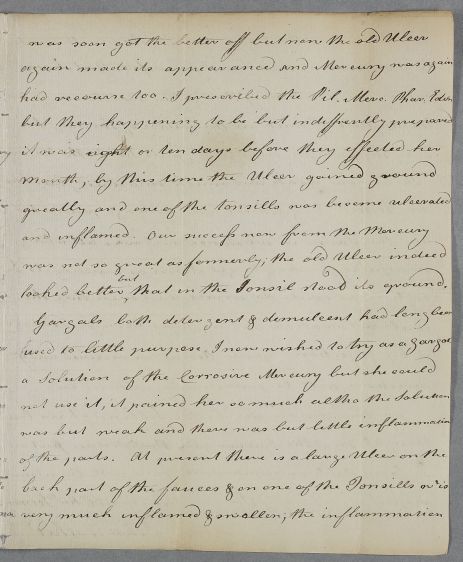 was soon got the better off but now the old Ulcer
again made its appearance and Mercury was again
had recourse too. I prescribed the Pil. Merc. Phar. Edin.
but they happening to be but indifferently prepared
it was eight or ten days before they effected her
mouth, by this time the Ulcer gained ground
greatly and one of the tonsills was become ulcerated
and inflamed. Our success now from the Mercury
was not so great as formerly; the old Ulcer indeed
looked better but that in the Tonsil stood its ground.
Gargals both detergent & demulcent had long been
used to little purpose. I now wished to try as a gargle
a Solution of the Corrosive Mercury but she could
not use it, it pained her so much altho the Solution
was but weak and there was but little inflammation
of the parts. At present there is a large Ulcer on the
back part of the fauces & on one of the Tonsills wc is
very much inflamed & swollen; the inflammation